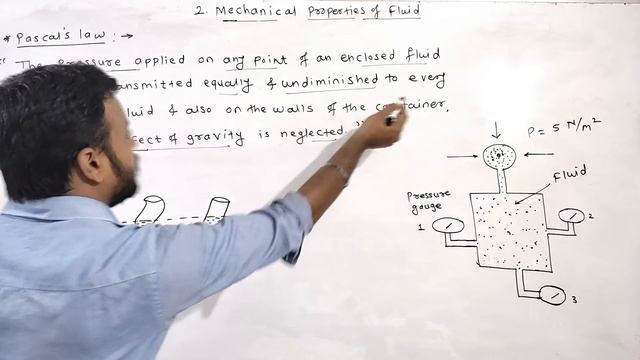 2. Mechanical Properties of Fluid
* Pascal's law : →
" The Pressure applied on any point of an enclosed fluid
ansmitted equally & undiminished to every
luid & also on the walls of the container,
fect of gravity is neglected. "
P = 5 N/m²
Fluid
Pressure
gauge
1
2
3